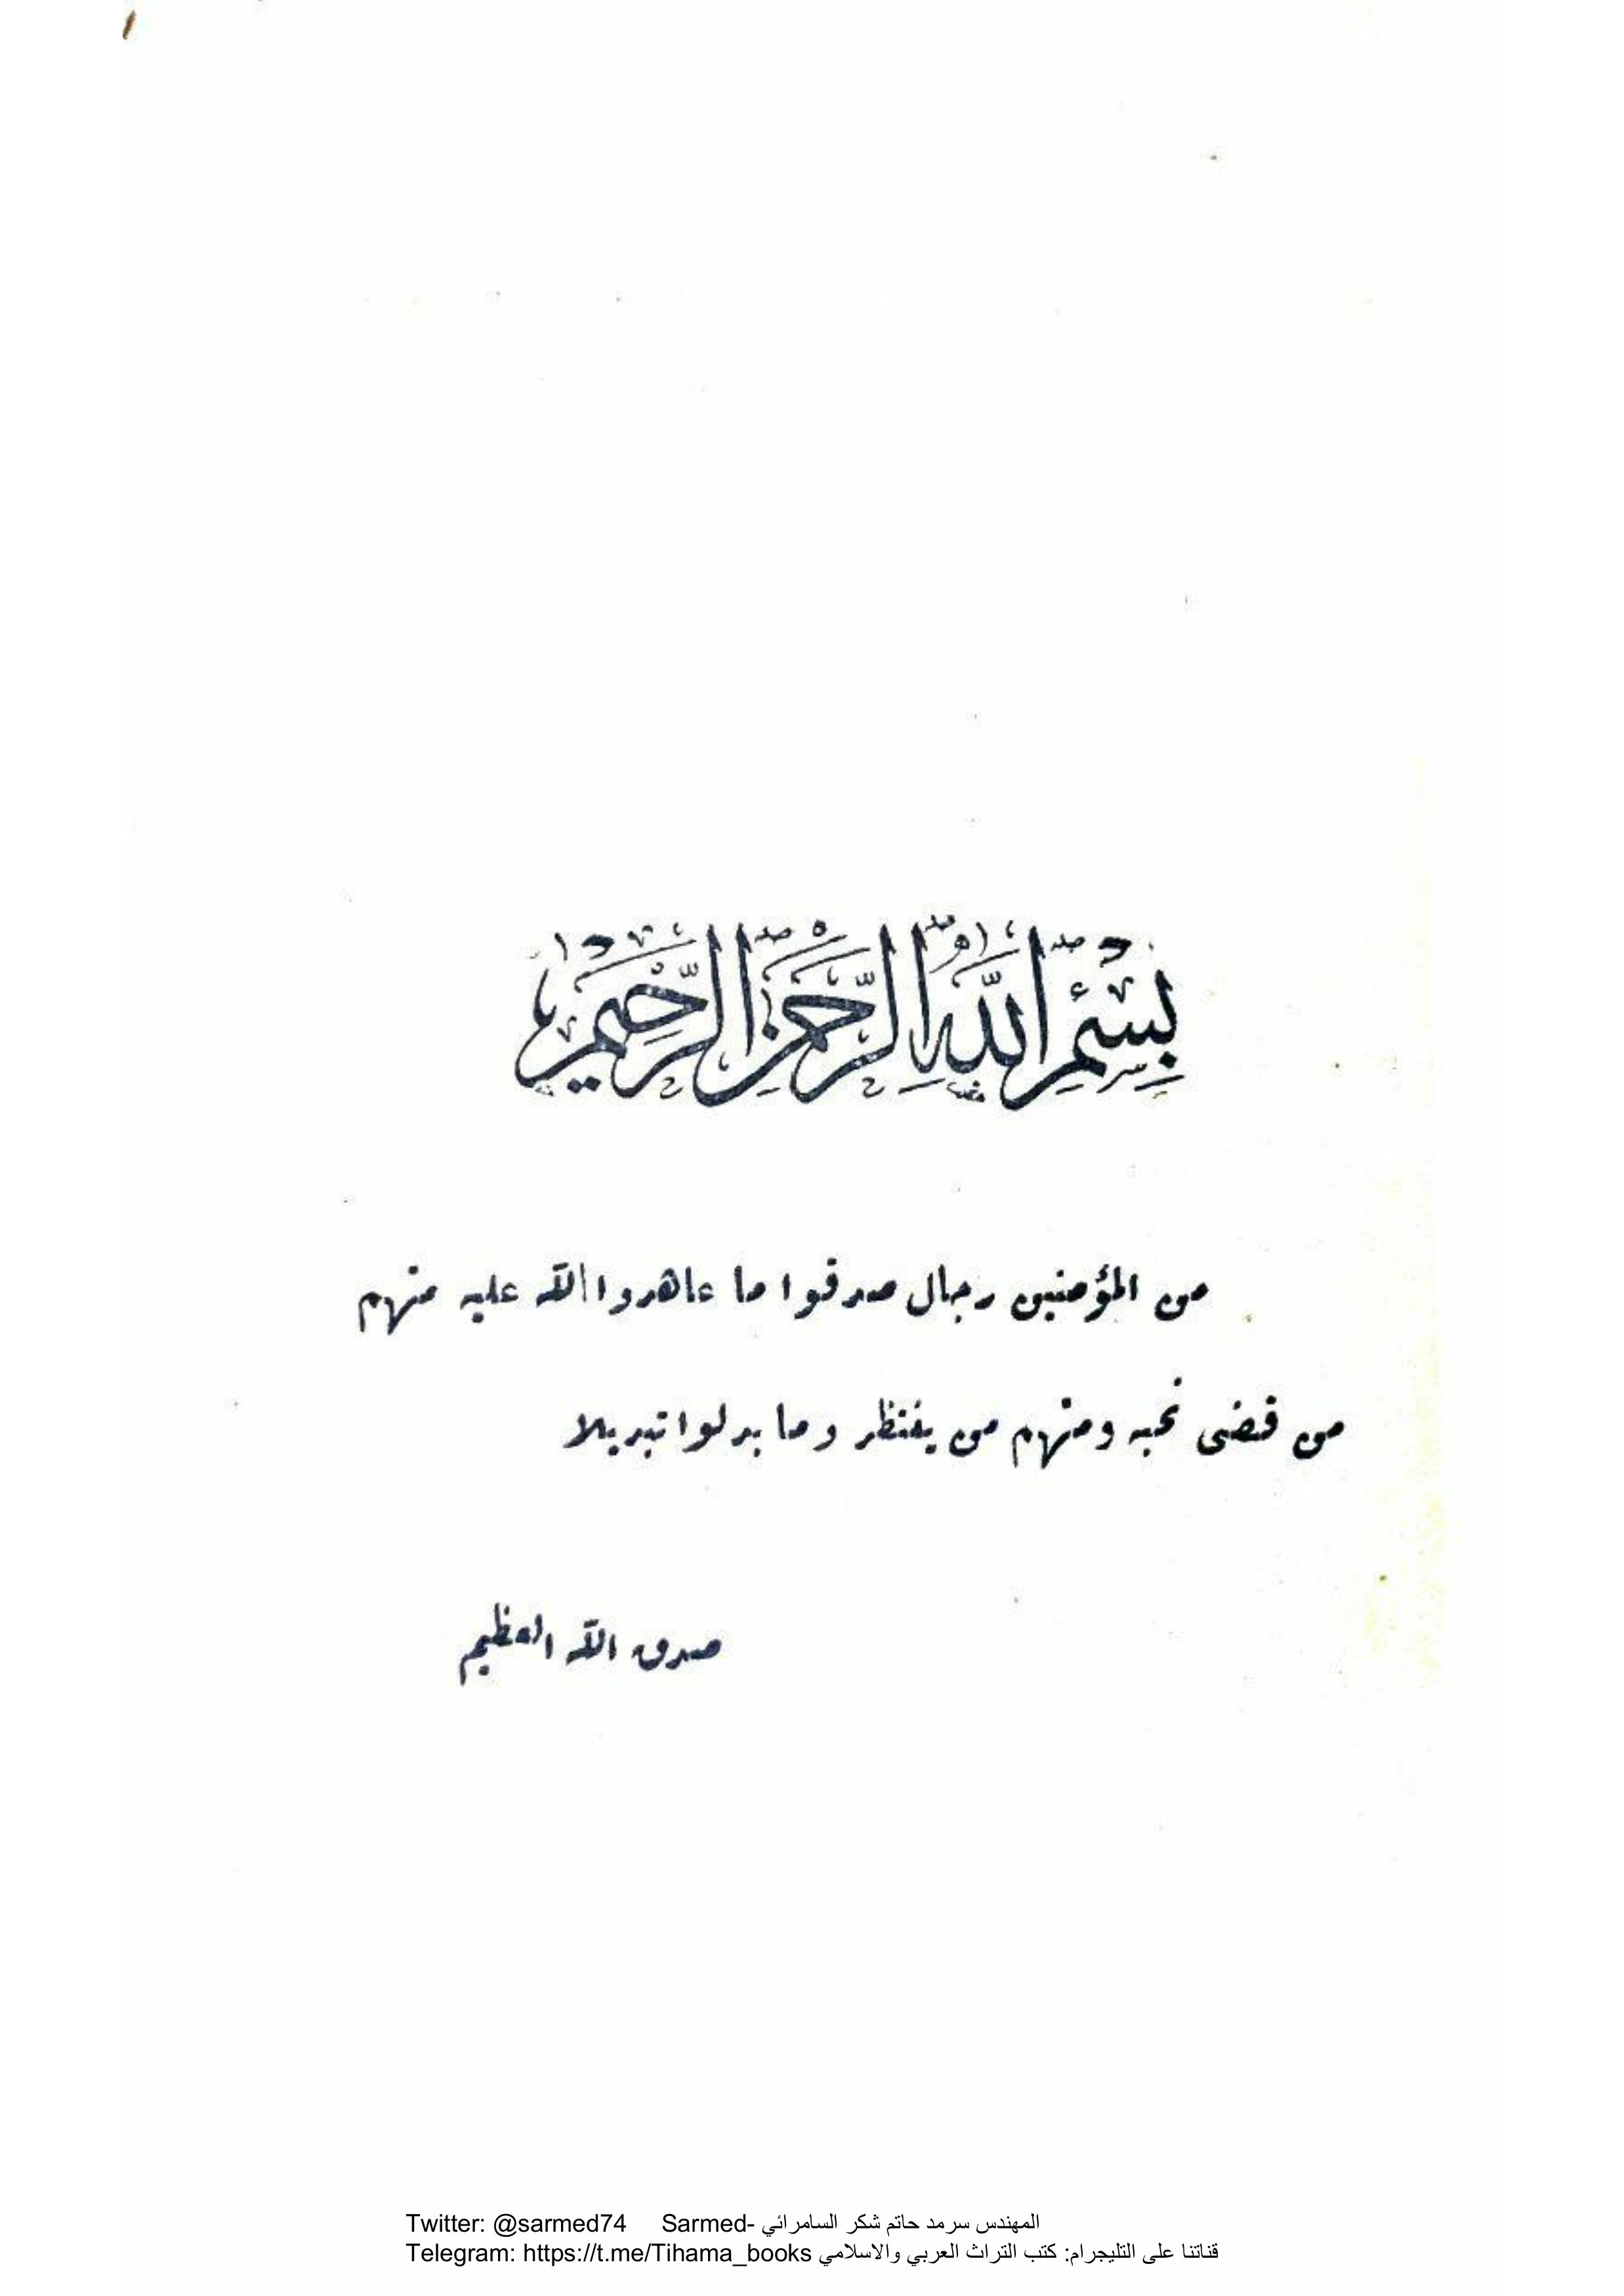 بِسْمِ اللَّهِ الرَّحْمَٰنِ الرَّحِيمِ
من المؤمنين رجال صدقوا ما عاهدوا الله عليه منهم
من قضى نحبه ومنهم من ينتظر وما بدلوا تبديلا
صدق الله العظيم
Twitter: @sarmed74 Sarmed- المهندس سرمد حاتم شكر السامرائي
Telegram: https://t.me/Tihama_books قناتنا على التليجرام: كتب التراث العربي والاسلامي